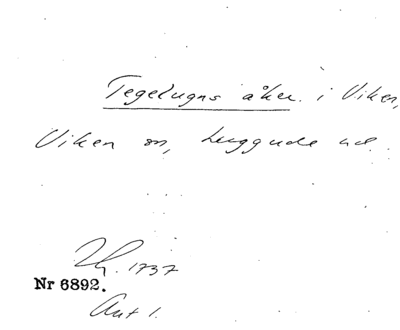 Tegelugns åker. i Viken,
Viken sn, Luggude hd.
Lh. 1737
Nr 6892.
Akt 1.